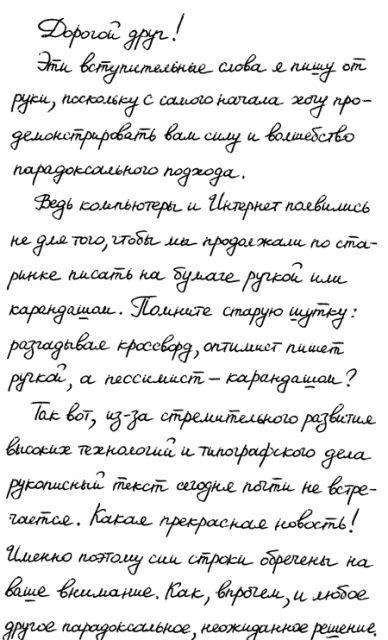 Дорогой друг!
Эти вступительные слова я пишу от
руки, поскольку с самого начала хочу про-
демонстрировать вам силу и волшебство
парадоксального подхода.
Ведь компьютеры и Интернет появились
не для того, чтобы мы продолжали по ста-
ринке писать на бумаге ручкой или
карандашом. Помните старую шутку:
разгадывая кроссворд, оптимист пишет
ручкой, а пессимист – карандашом?
Так вот, из-за стремительного развития
высоких технологий и типографского дела
рукописный текст сегодня почти не встре-
чается. Какая прекрасная новость!
Именно поэтому сии строки обречены на
ваше внимание. Как, впрочем, и любое
другое парадоксальное, неожиданное решение,